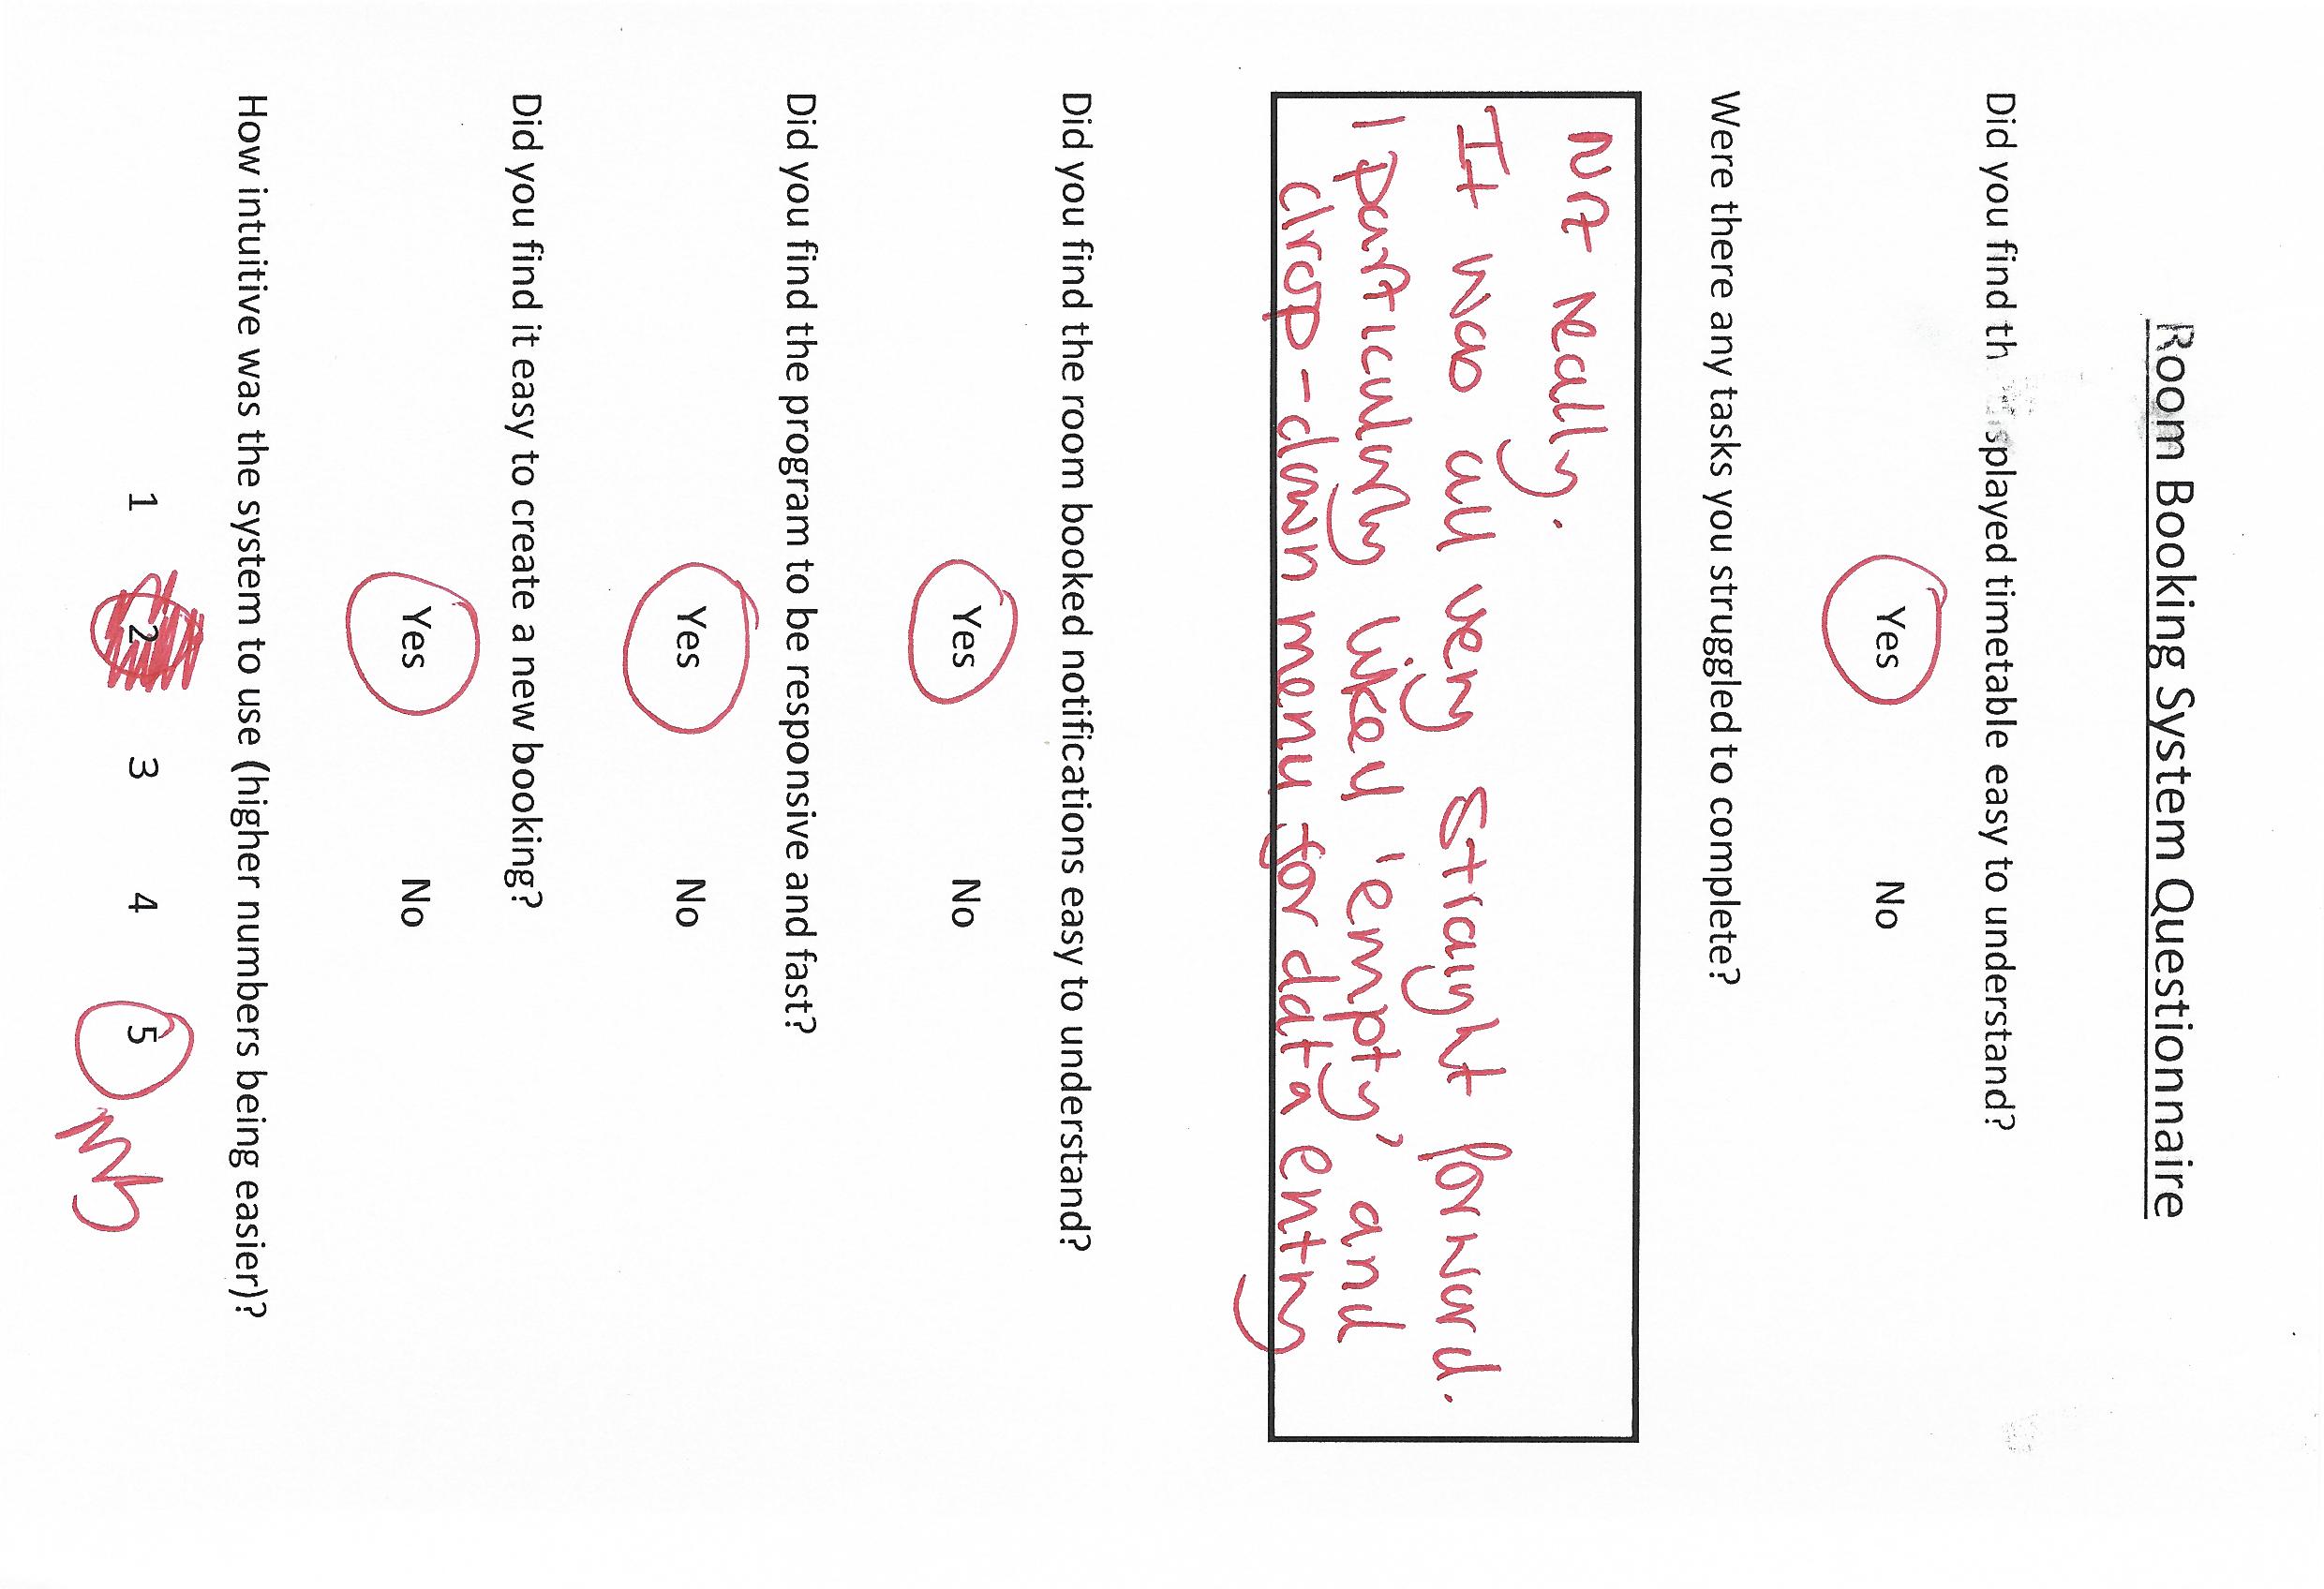 Room Booking System Questionnaire
Did you find th splayed timetable easy to understand?
Yes No
Were there any tasks you struggled to complete?
Not really.
It was all very straight forward.
I particularly liked 'empty' and
drop-down menu for data entry
Did you find the room booked notifications easy to understand?
Yes No
Did you find the program to be responsive and fast?
Yes No
Did you find it easy to create a new booking?
Yes No
How intuitive was the system to use (higher numbers being easier)?
1 2 3 4 5